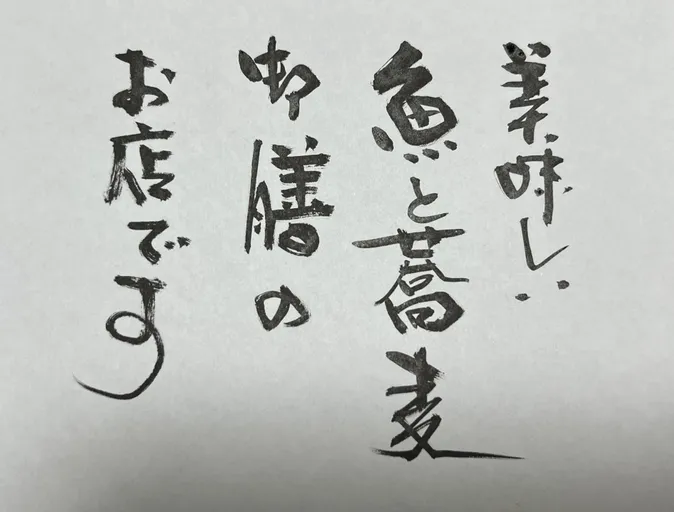 美味しい
魚と蕎麦
御膳の
お店です